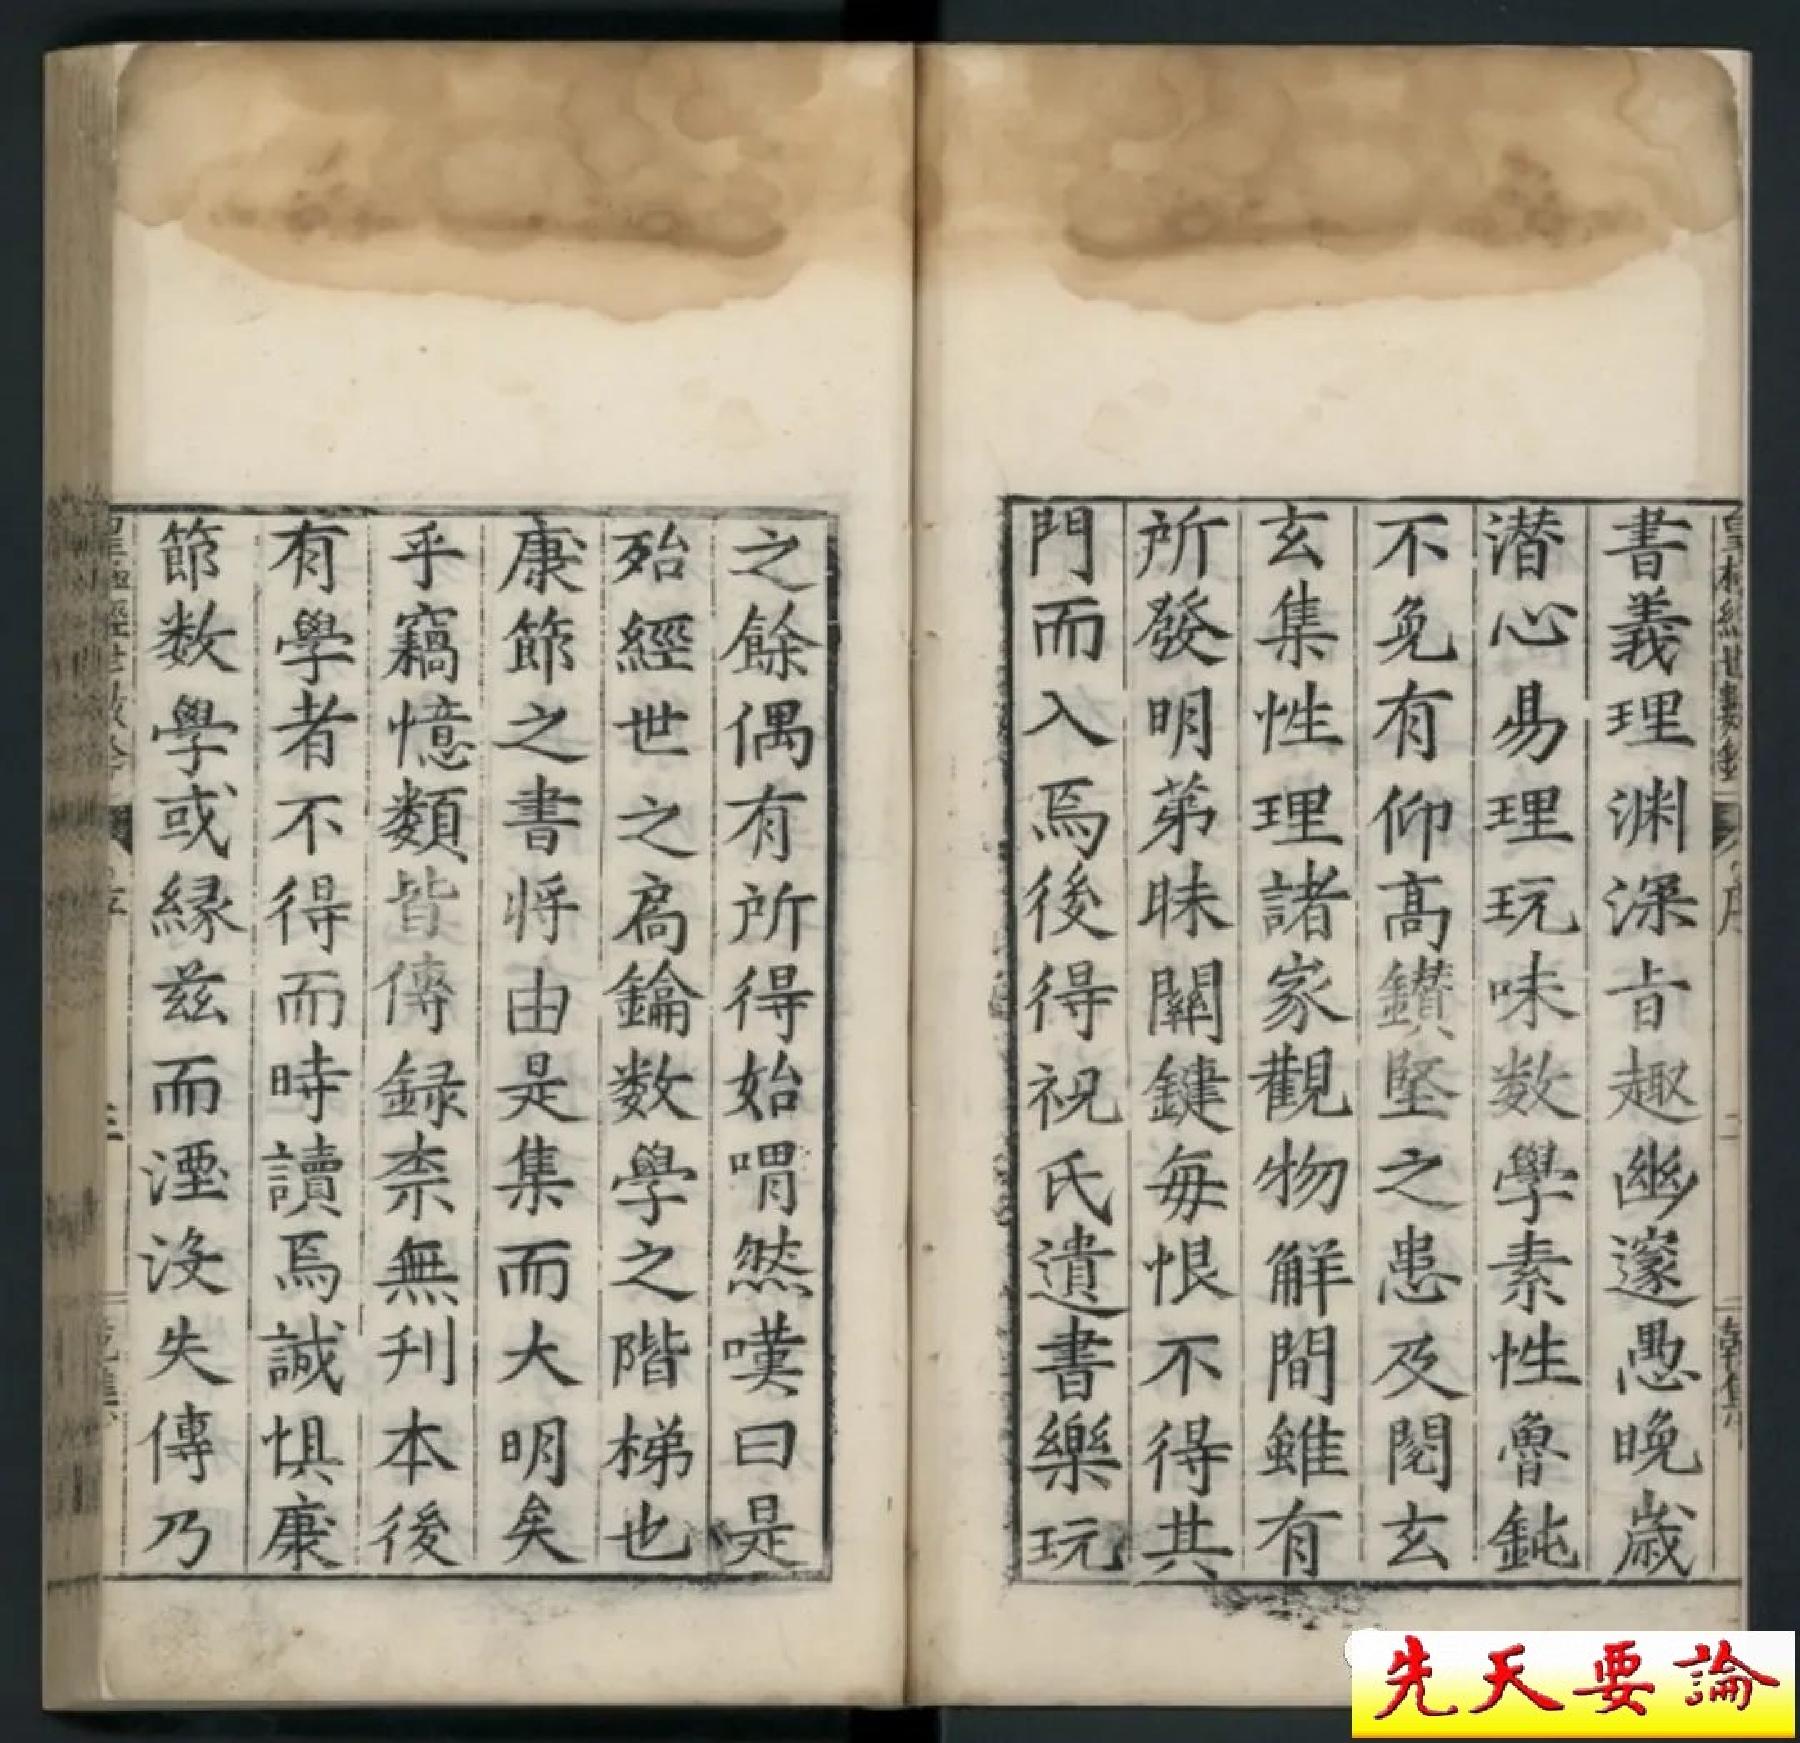 書義理渊深旨趣幽邃愚晚歲
潛心易理玩味数學素性魯鈍
不免有仰高鑚堅之患及閱玄
玄集性理諸家觀物觧間雖有
所發明苐昧關鍵每恨不得其
門而入焉後得祝氏遺書樂玩
之餘偶有所得始喟然嘆曰是
殆經世之扃鑰数學之階梯也
康節之書将由是集而大明矣
乎竊憶類皆傳録柰無刋本後
有學者不得而時讀焉誠惧康
節数學或縁兹而湮没失傳乃
先天要論